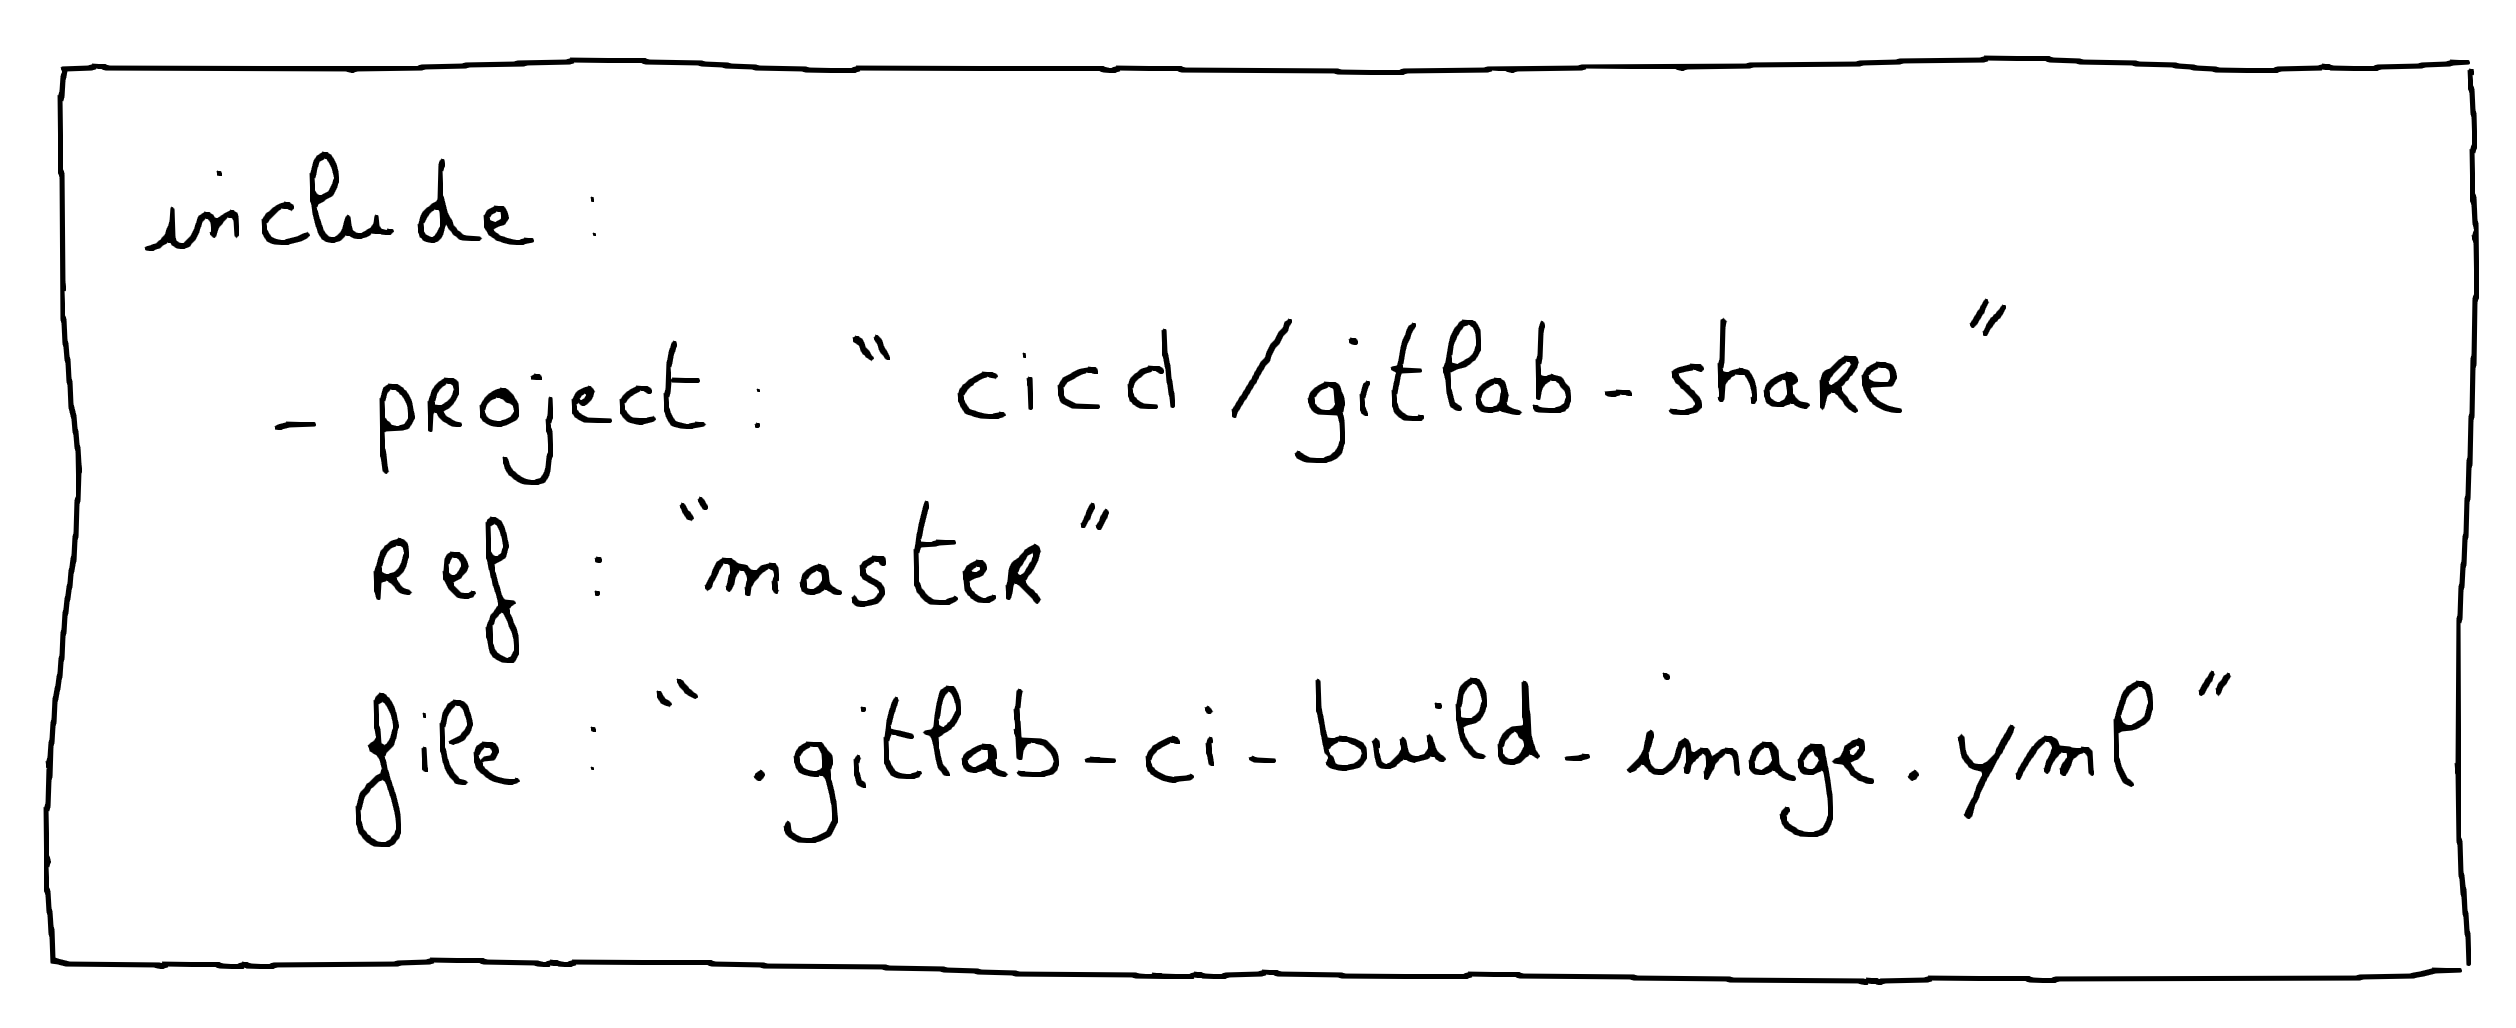 include :
- project : “ cicd / gitlab-share ”
ref : “master”
file : “ .gitlab-ci-build-image.yml”